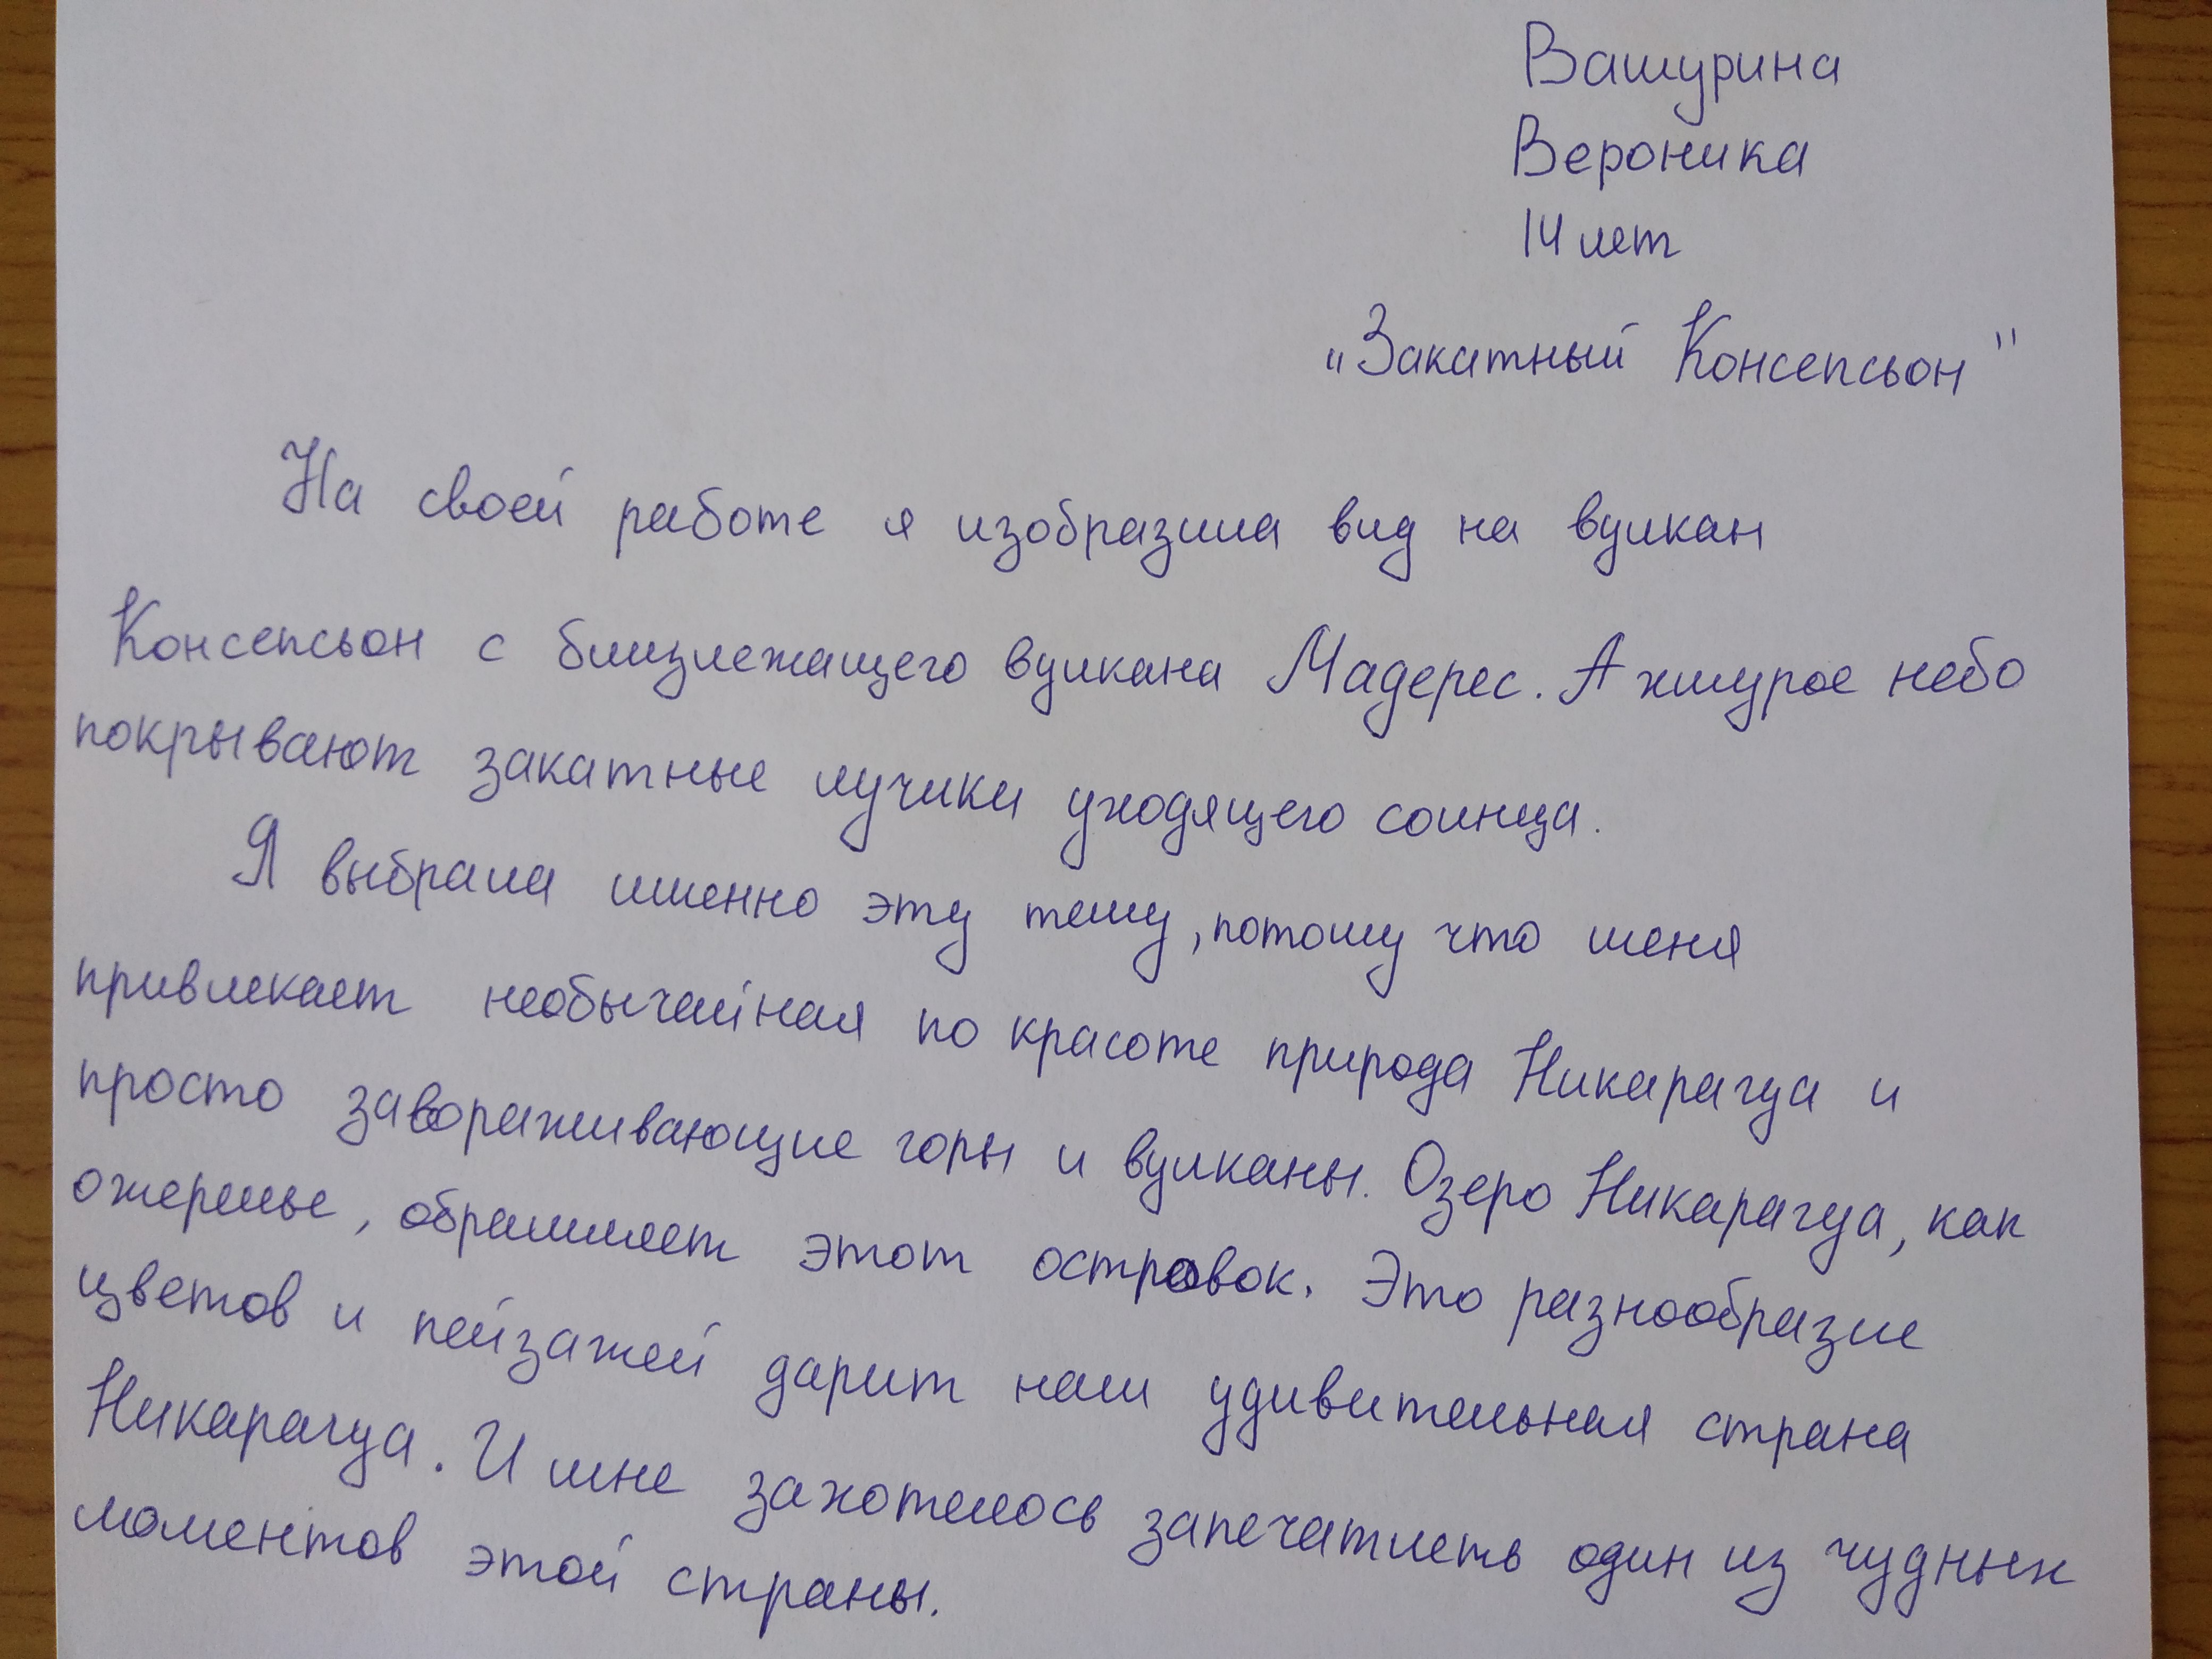 Вашурина
Вероника
14 лет
„Закатный Консепсьон"
На своей работе я изобразила вид на вулкан
Консепсьон с близлежащего вулкана Мадерес. А хмурое небо
покрывают закатные лучики уходящего солнца.
Я выбрала именно эту тему, потому что меня
привлекает необычайная по красоте природа Никарагуа и
просто завораживающие горы и вулканы. Озеро Никарагуа, как
ожерелье, обрамляет этот островок. Это разнообразие
цветов и пейзажей дарит нам удивительная страна
Никарагуа. И мне захотелось запечатлеть один из чудных
моментов этой страны.